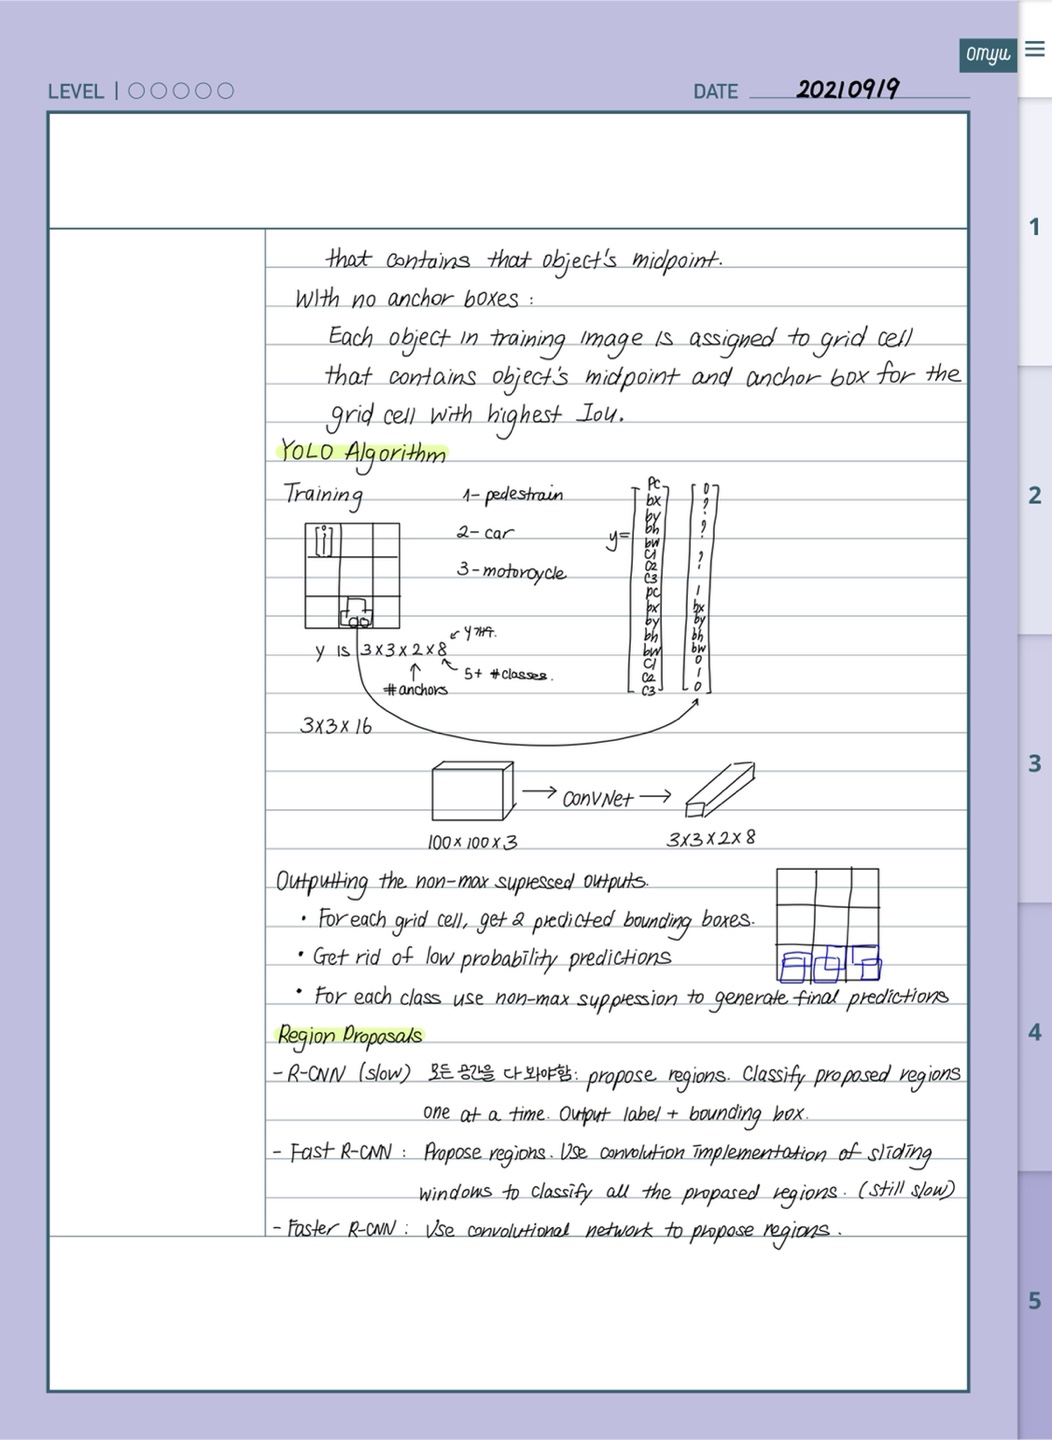 omyu
LEVEL
DATE 20210919
1
2
3
4
5
that contains that object's midpoint.
With no anchor boxes :
Each object in training image is assigned to grid cell
that contains object's midpoint and anchor box for the
grid cell with highest IoU.
YOLO Algorithm
Training
1- pedestrain
2- car
3-motorcycle
y=
Pc
bx
by
bh
bw
C1
C2
C3
pc
bx
by
bh
bw
C1
C2
C3
0
?
?
?
1
bx
by
bh
bw
0
1
0
y is 3x3x2x8
5+ #classes.
#anchors
3x3x16
→ ConvNet →
100x100x3
3x3x2x8
Outputting the non-max supressed outputs.
• For each grid cell, get 2 predicted bounding boxes.
• Get rid of low probability predictions
• For each class use non-max suppression to generate final predictions
Region Proposals
- R-CNN (slow) 모든 공간을 다 봐야함: propose regions. Classify proposed regions
one at a time. Output label + bounding box.
- Fast R-CNN : Propose regions. Use convolution implementation of sliding
windows to classify all the proposed regions. (still slow)
- Faster R-CNN : Use convolutional network to propose regions.